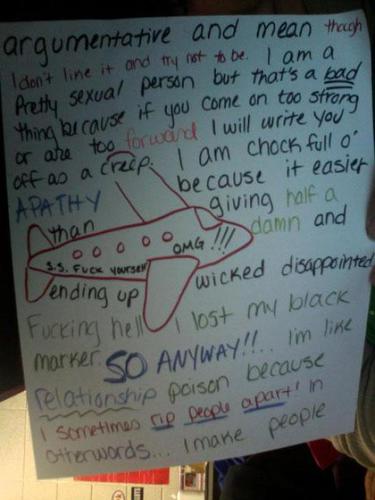 argumentative and mean though
I don't like it and try not to be. I am a
Pretty sexual person but that's a bad
thing because if you come on too strong
or are too forward I will write you
off as a creep. I am chock full o'
APATHY because it easier
than giving half a
OMG!!! damn and
S.S. Fuck Yourself
ending up wicked disappointed
Fucking hell I lost my black
marker. SO ANYWAY!!... I'm like
relationship poison because
I sometimes rip people apart! In
otherwords... I make people